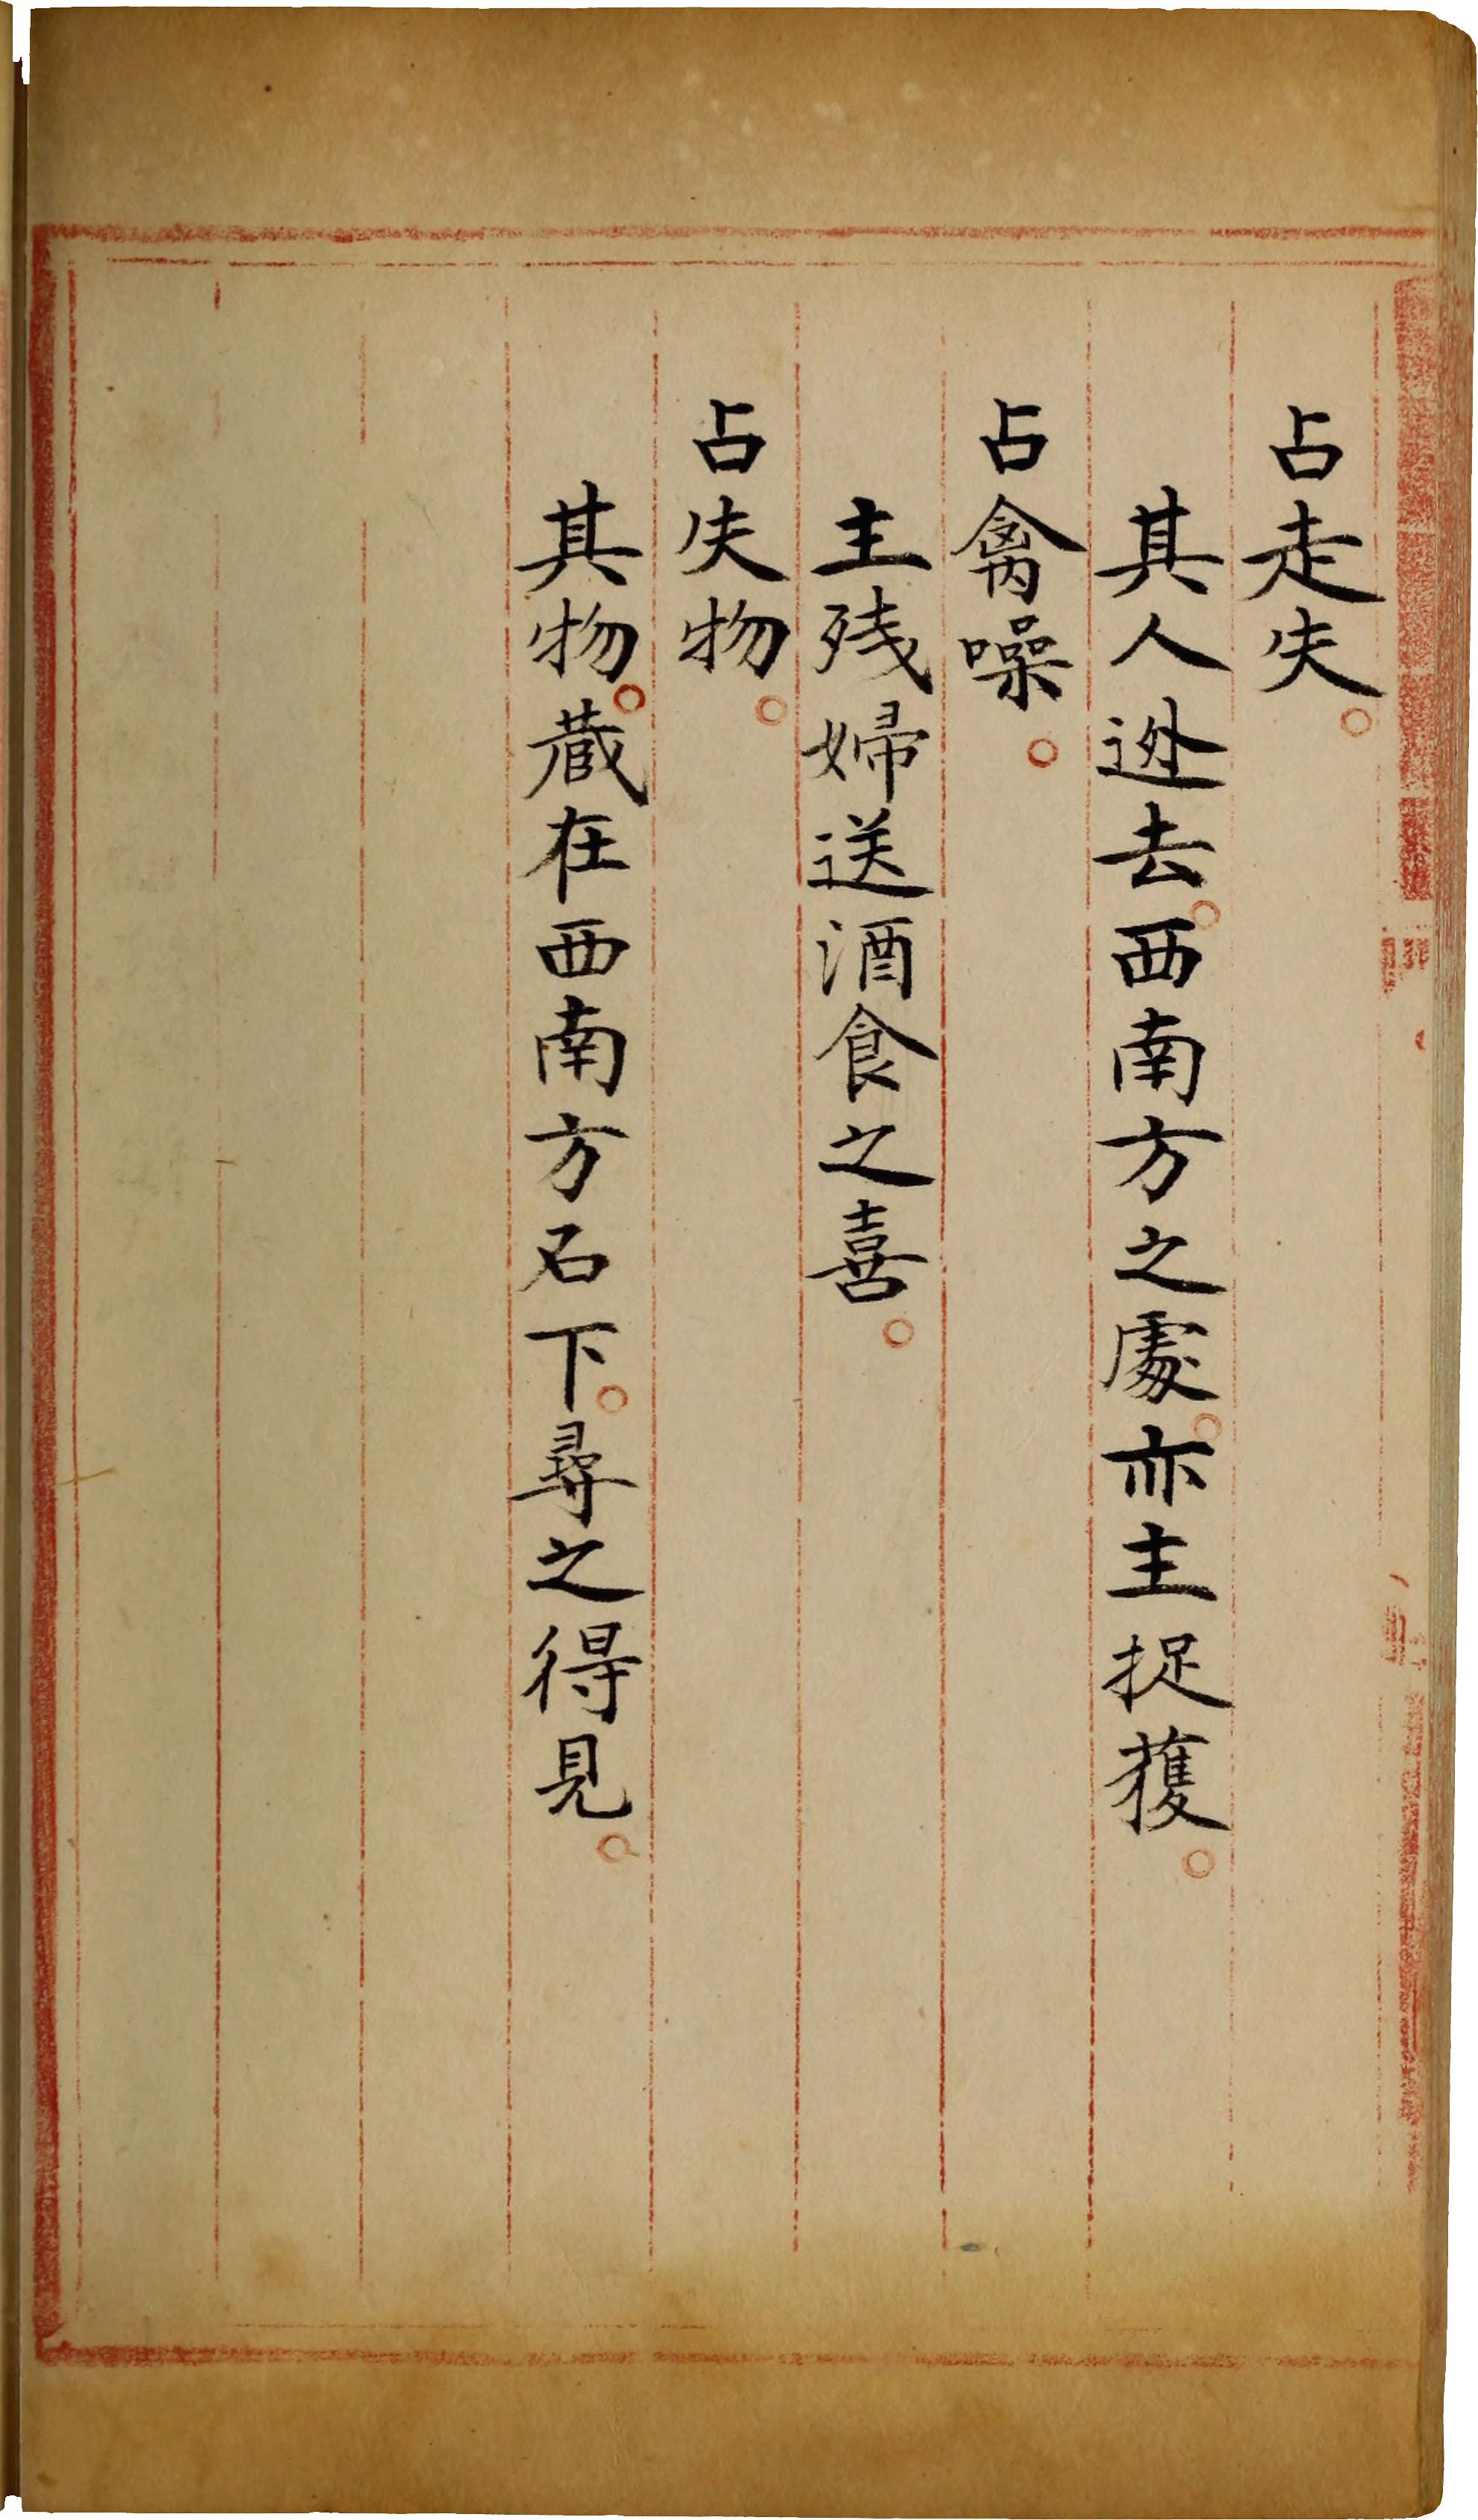 占走失。
其人迯去。西南方之處。亦主捉獲。
占禽噪。
主残婦送酒食之喜。
占失物。
其物。藏在西南方石下。尋之得見。